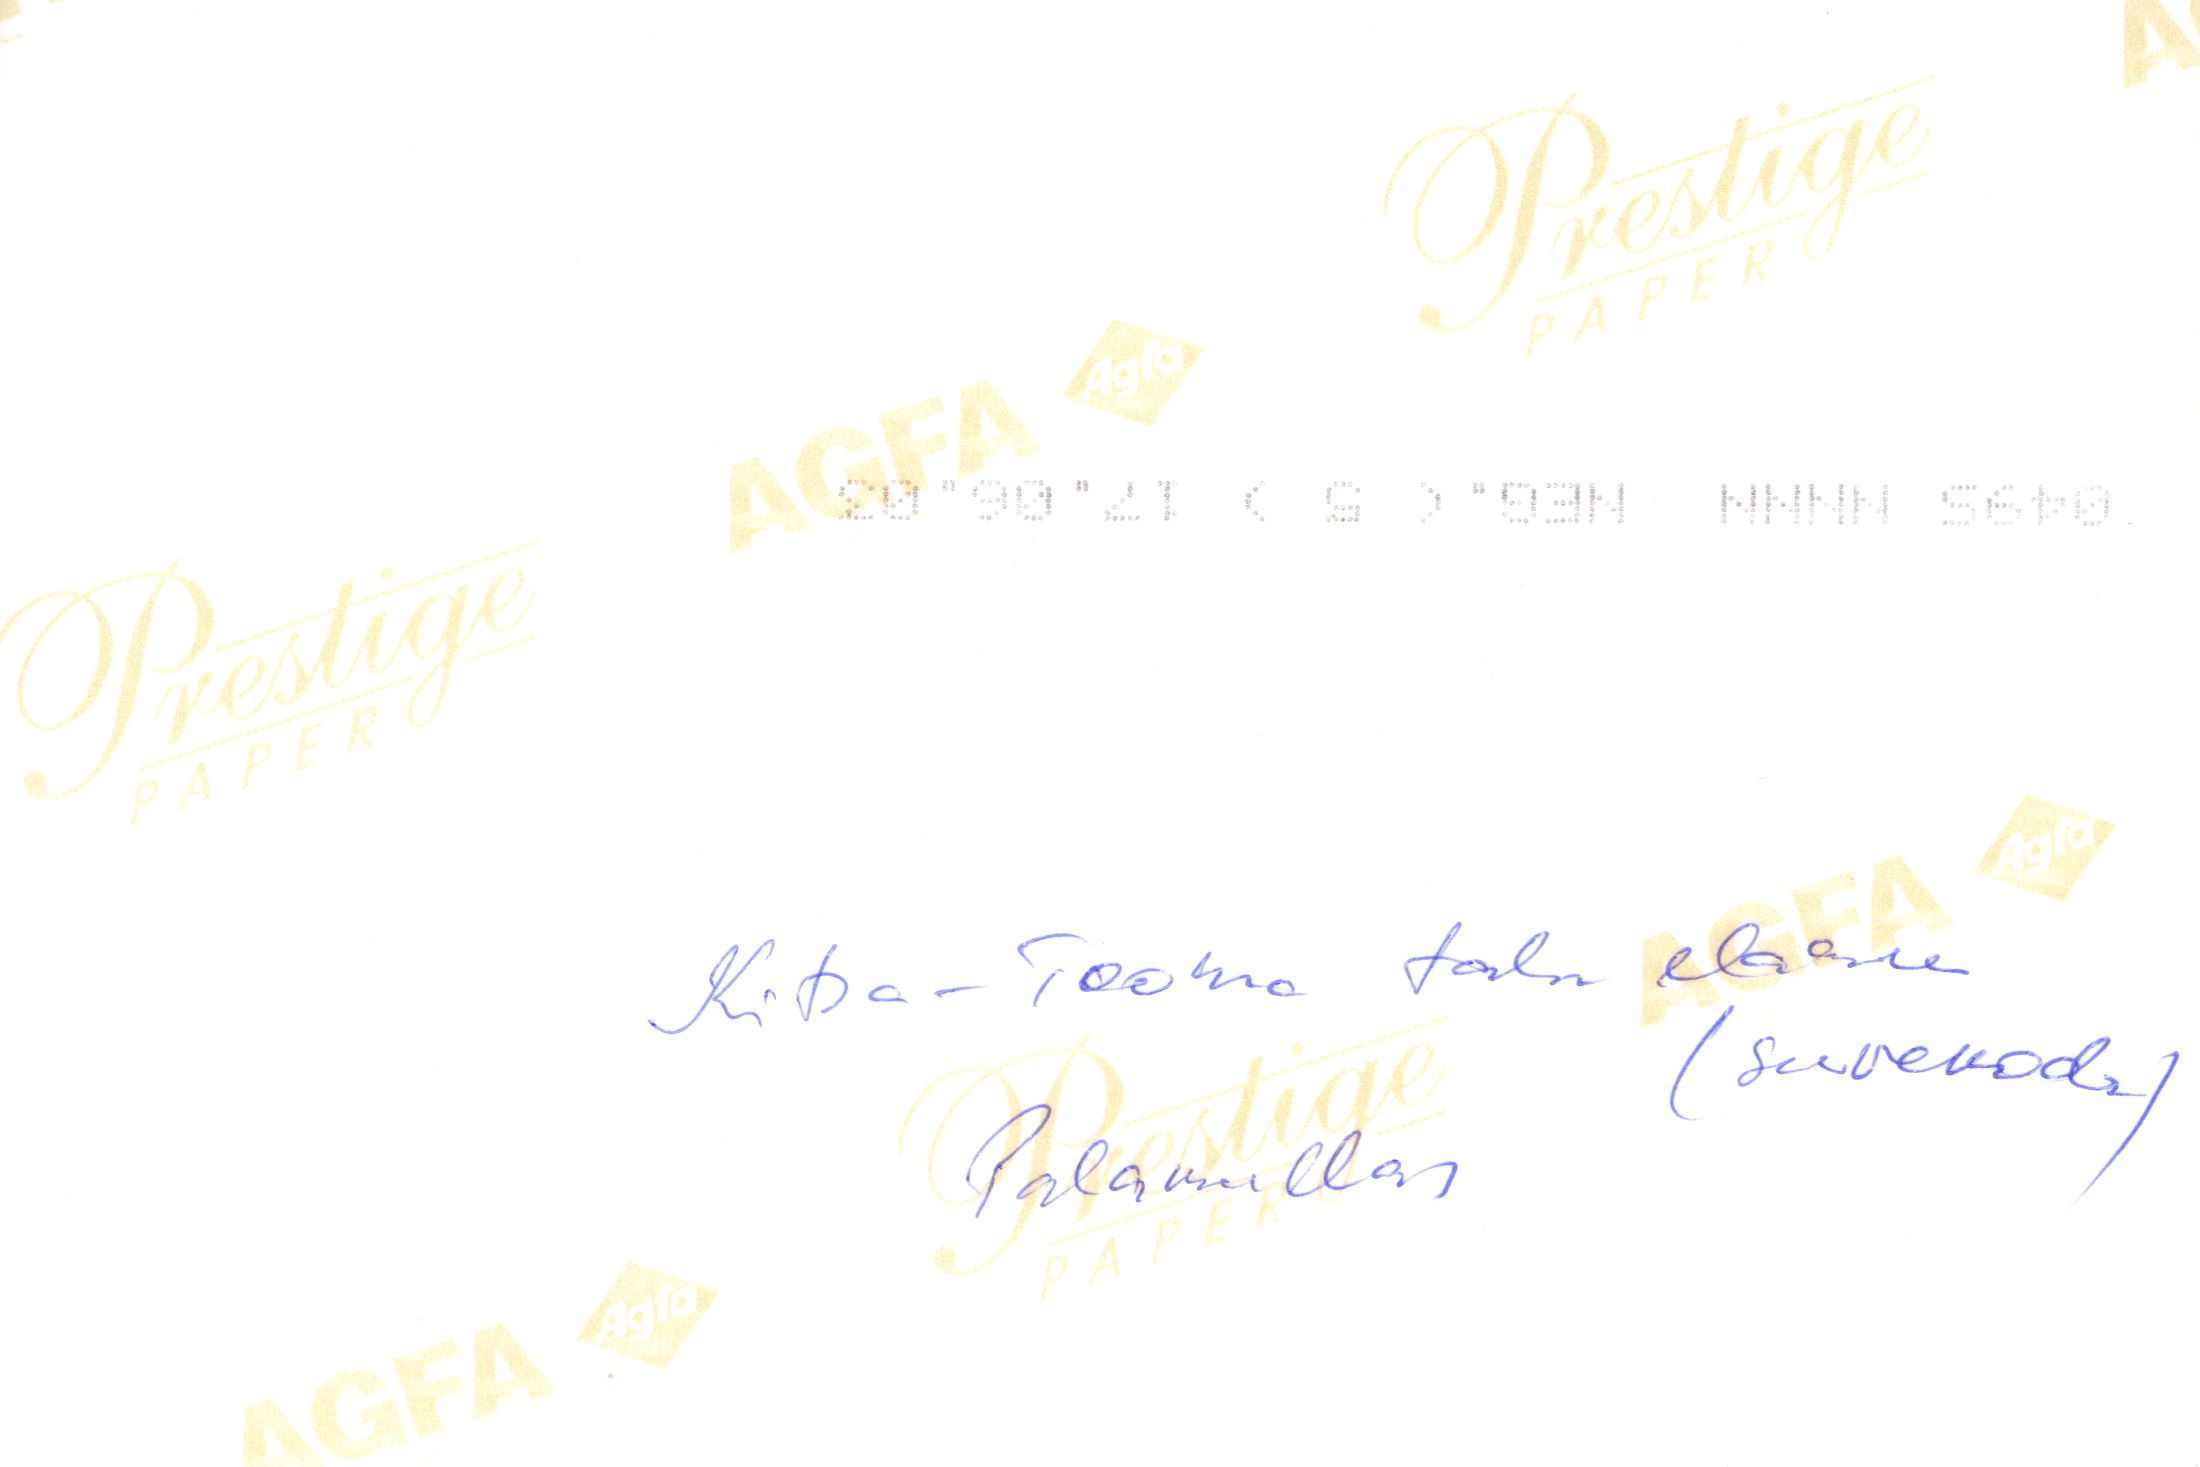 Prestige
PAPER
AGFA Agfa
Prestige
PAPER
AGFA Agfa
Kitsa-Tooma talu elamu
(suvekodu)
Palamullas
Prestige
PAPER
AGFA Agfa